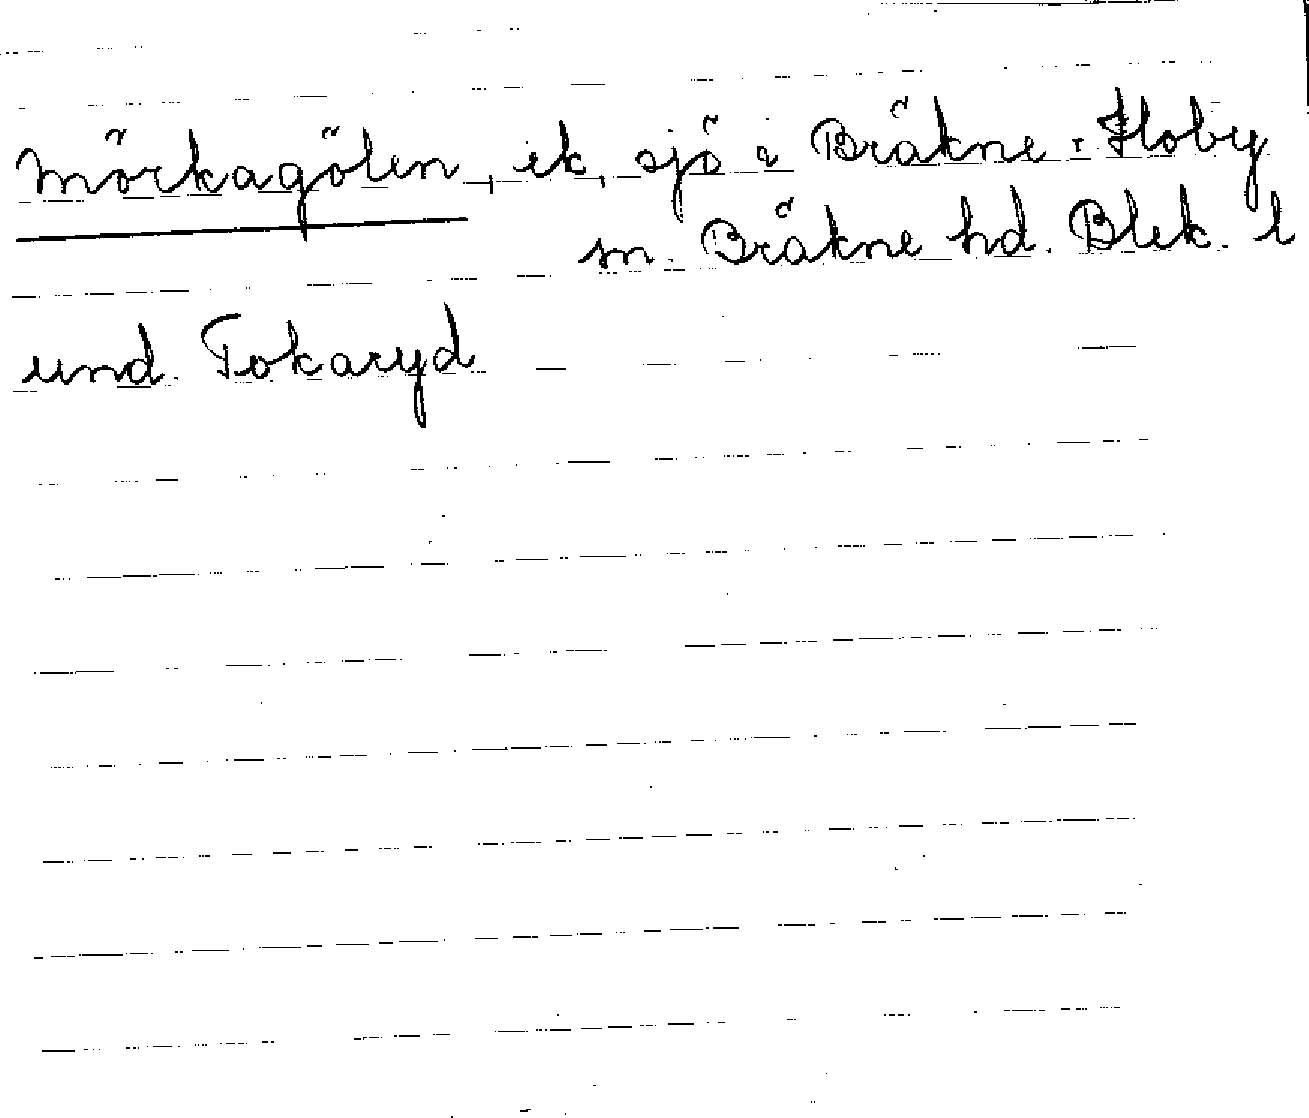 Mörkagölen, ek, sjö i Bräkne-Hoby
sn. Bräkne hd. Blek. l
und. Tokaryd